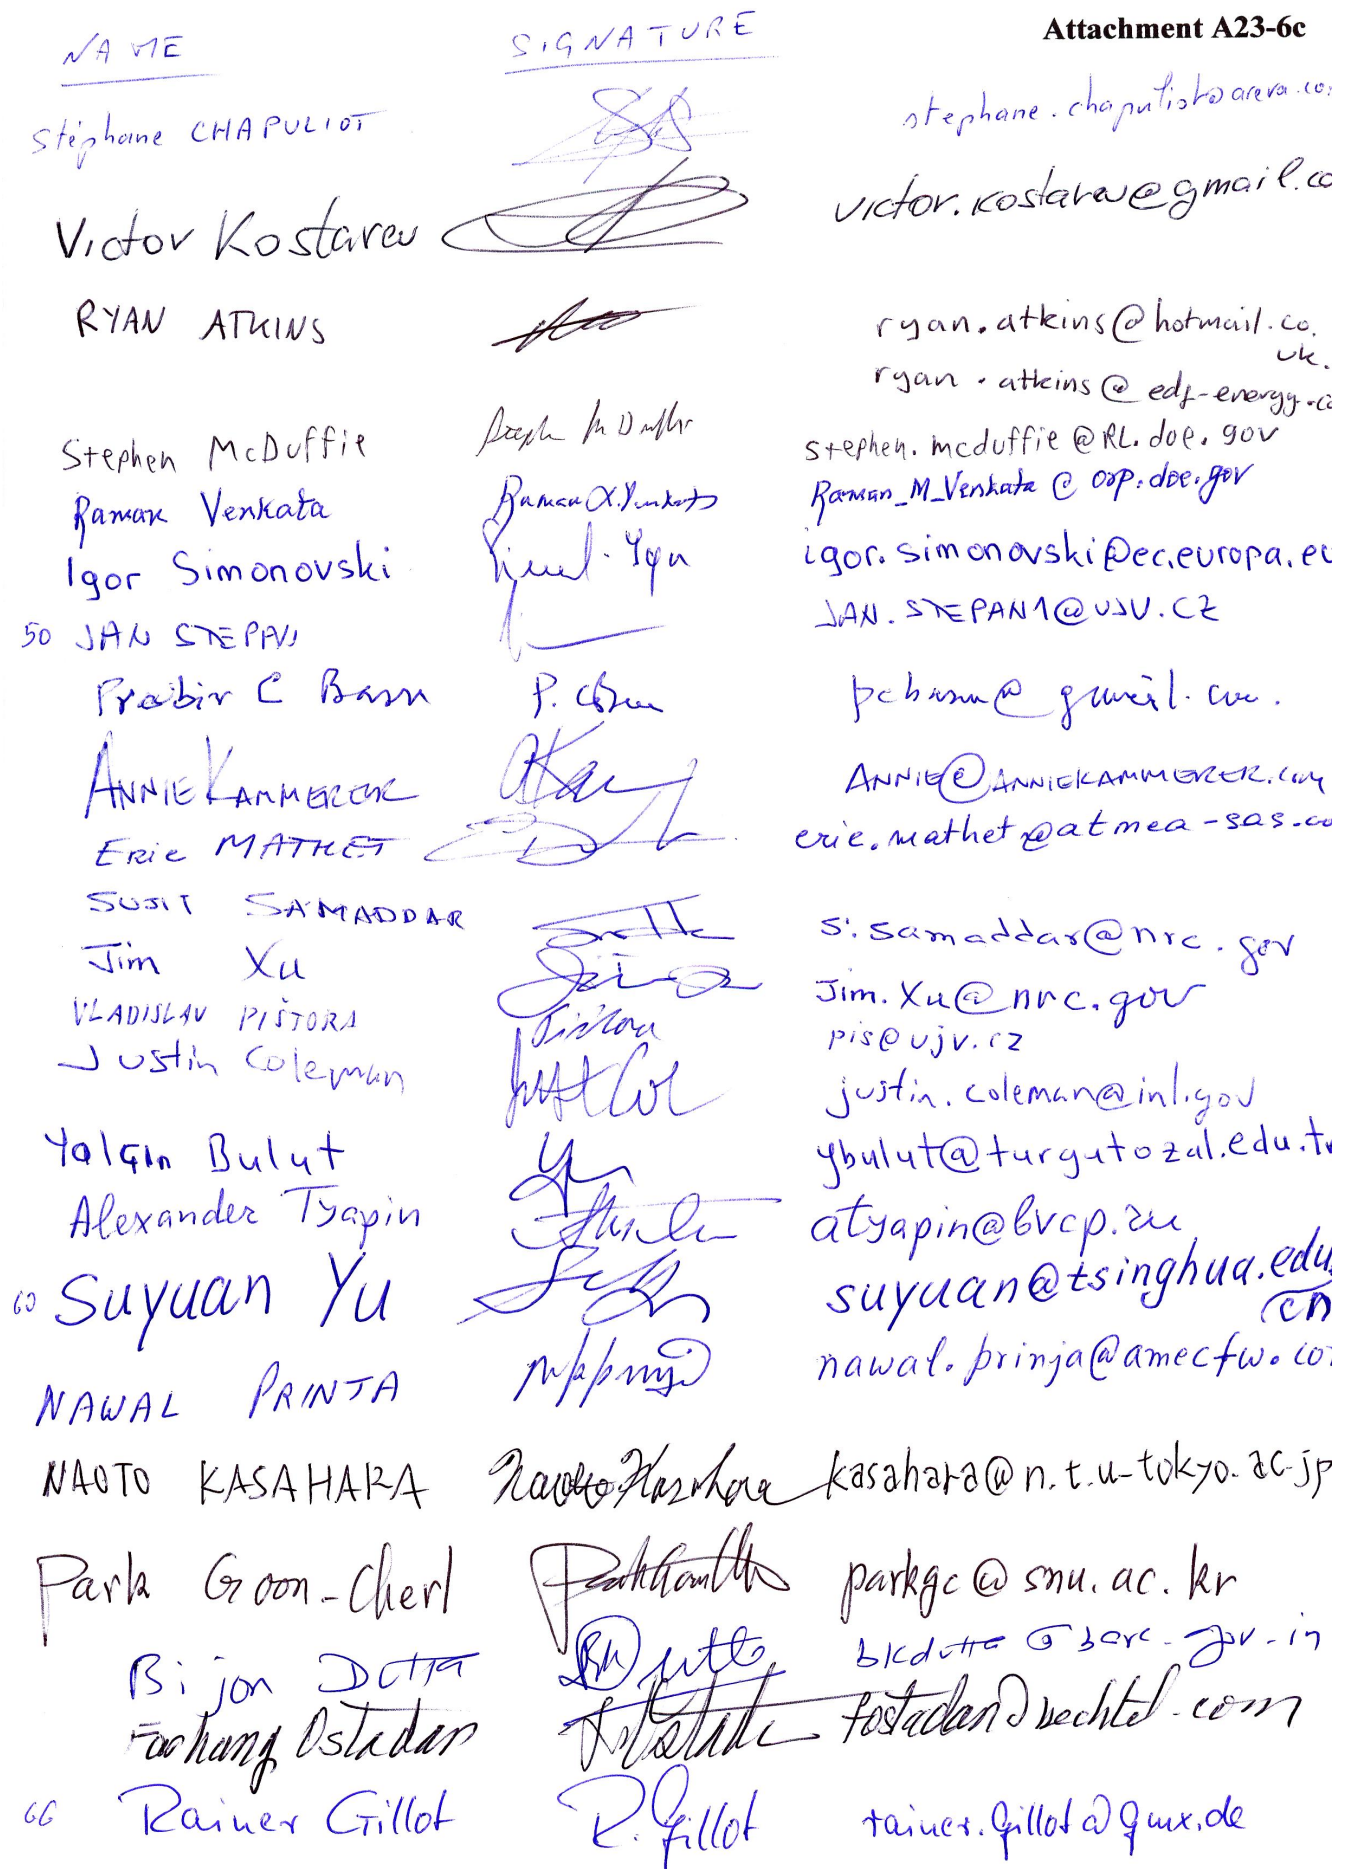 Attachment A23-6c
NAME SIGNATURE
Stéphane CHAPULIOT stephane.chapuliot@areva.co
Victor Kostarev victor.kostarev@gmail.co
RYAN ATKINS ryan.atkins@hotmail.co.
uk.
ryan.atkins@edf-energy.co
Stephen McDuffie stephen.mcduffie@RL.doe.gov
Raman Venkata Raman_M_Venkata@orp.doe.gov
Igor Simonovski igor.simonovski@ec.europa.eu
50 JAN STEPAN JAN.STEPAN1@UJV.CZ
Prabir C Basu P. C. Basu pcbasu@gmail.com.
ANNIE KAMMERER AKam ANNIE@ANNIEKAMMERER.COM
Eric MATHET eric.mathet@atmea-sas.co
SUJIT SAMADDAR s.samaddar@nrc.gov
Jim Xu Jim.Xu@nrc.gov
VLADISLAV PIŠTORA Pištora pis@ujv.cz
Justin Coleman Just Col justin.coleman@inl.gov
Yalçın Bulut ybulut@turgutozal.edu.tr
Alexander Tyapin atyapin@bvcp.ru
60 Suyuan Yu suyuan@tsinghua.edu.
cn
NAWAL PRINJA nawal.prinja@amecfw.co
NAOTO KASAHARA Naoto Kasahara kasahara@n.t.u-tokyo.ac.jp
Park Goon-Cherl parkgc@snu.ac.kr
Bijon Dutta BK Dutta bkdutta@barc.gov.in
Farhang Ostadan fostadan@bechtel.com
66 Rainer Gillot R. Gillot rainer.gillot@gmx.de